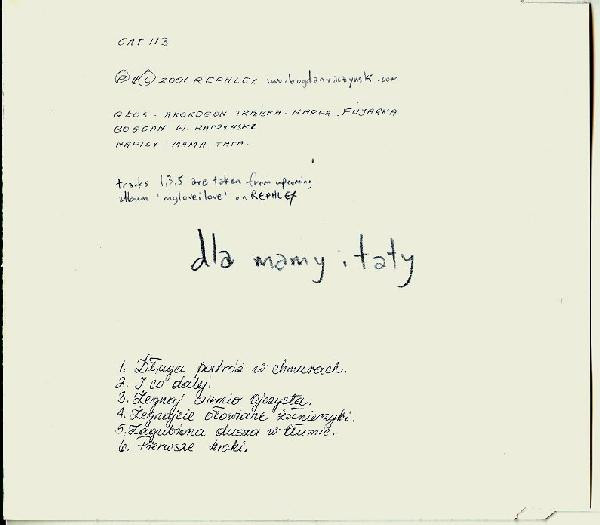 CAT 113
Ⓟ+Ⓒ 2001 REPHLEX www.bogdanraczynski.com
GŁOS - AKORDEON TRABKA - HARFA. FUJARKA
BOGDAN W. RACZYNSKI
MAMA TATA.
tracks 1,3,5 are taken from upcoming
album 'myloveilove' on REPHLEX
dla mamy i taty
1. Długa podróż w chmurach.
2. I co dalej.
3. Żegnaj ziemio ojczysta.
4. Żegnajcie ołowiane żołnierzyki.
5. Zagubiona dusza w tłumie.
6. Pierwsze kroki.